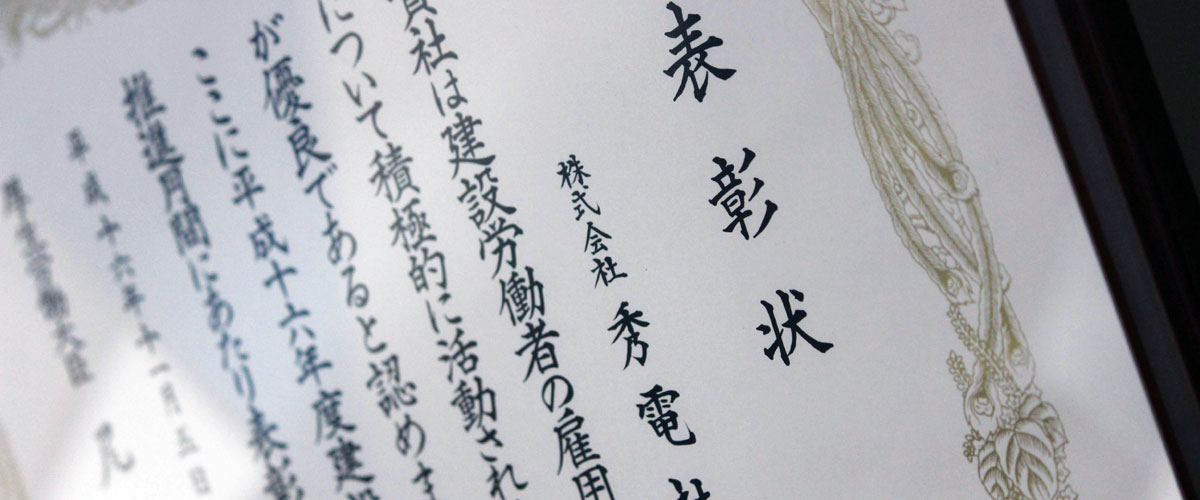 表彰状
株式会社 秀電社
貴社は建設労働者の雇用
について積極的に活動され
が優良であると認めま
ここに平成十六年度建設
推進月間にあたり表彰
平成十六年十一月五日
厚生労働大臣